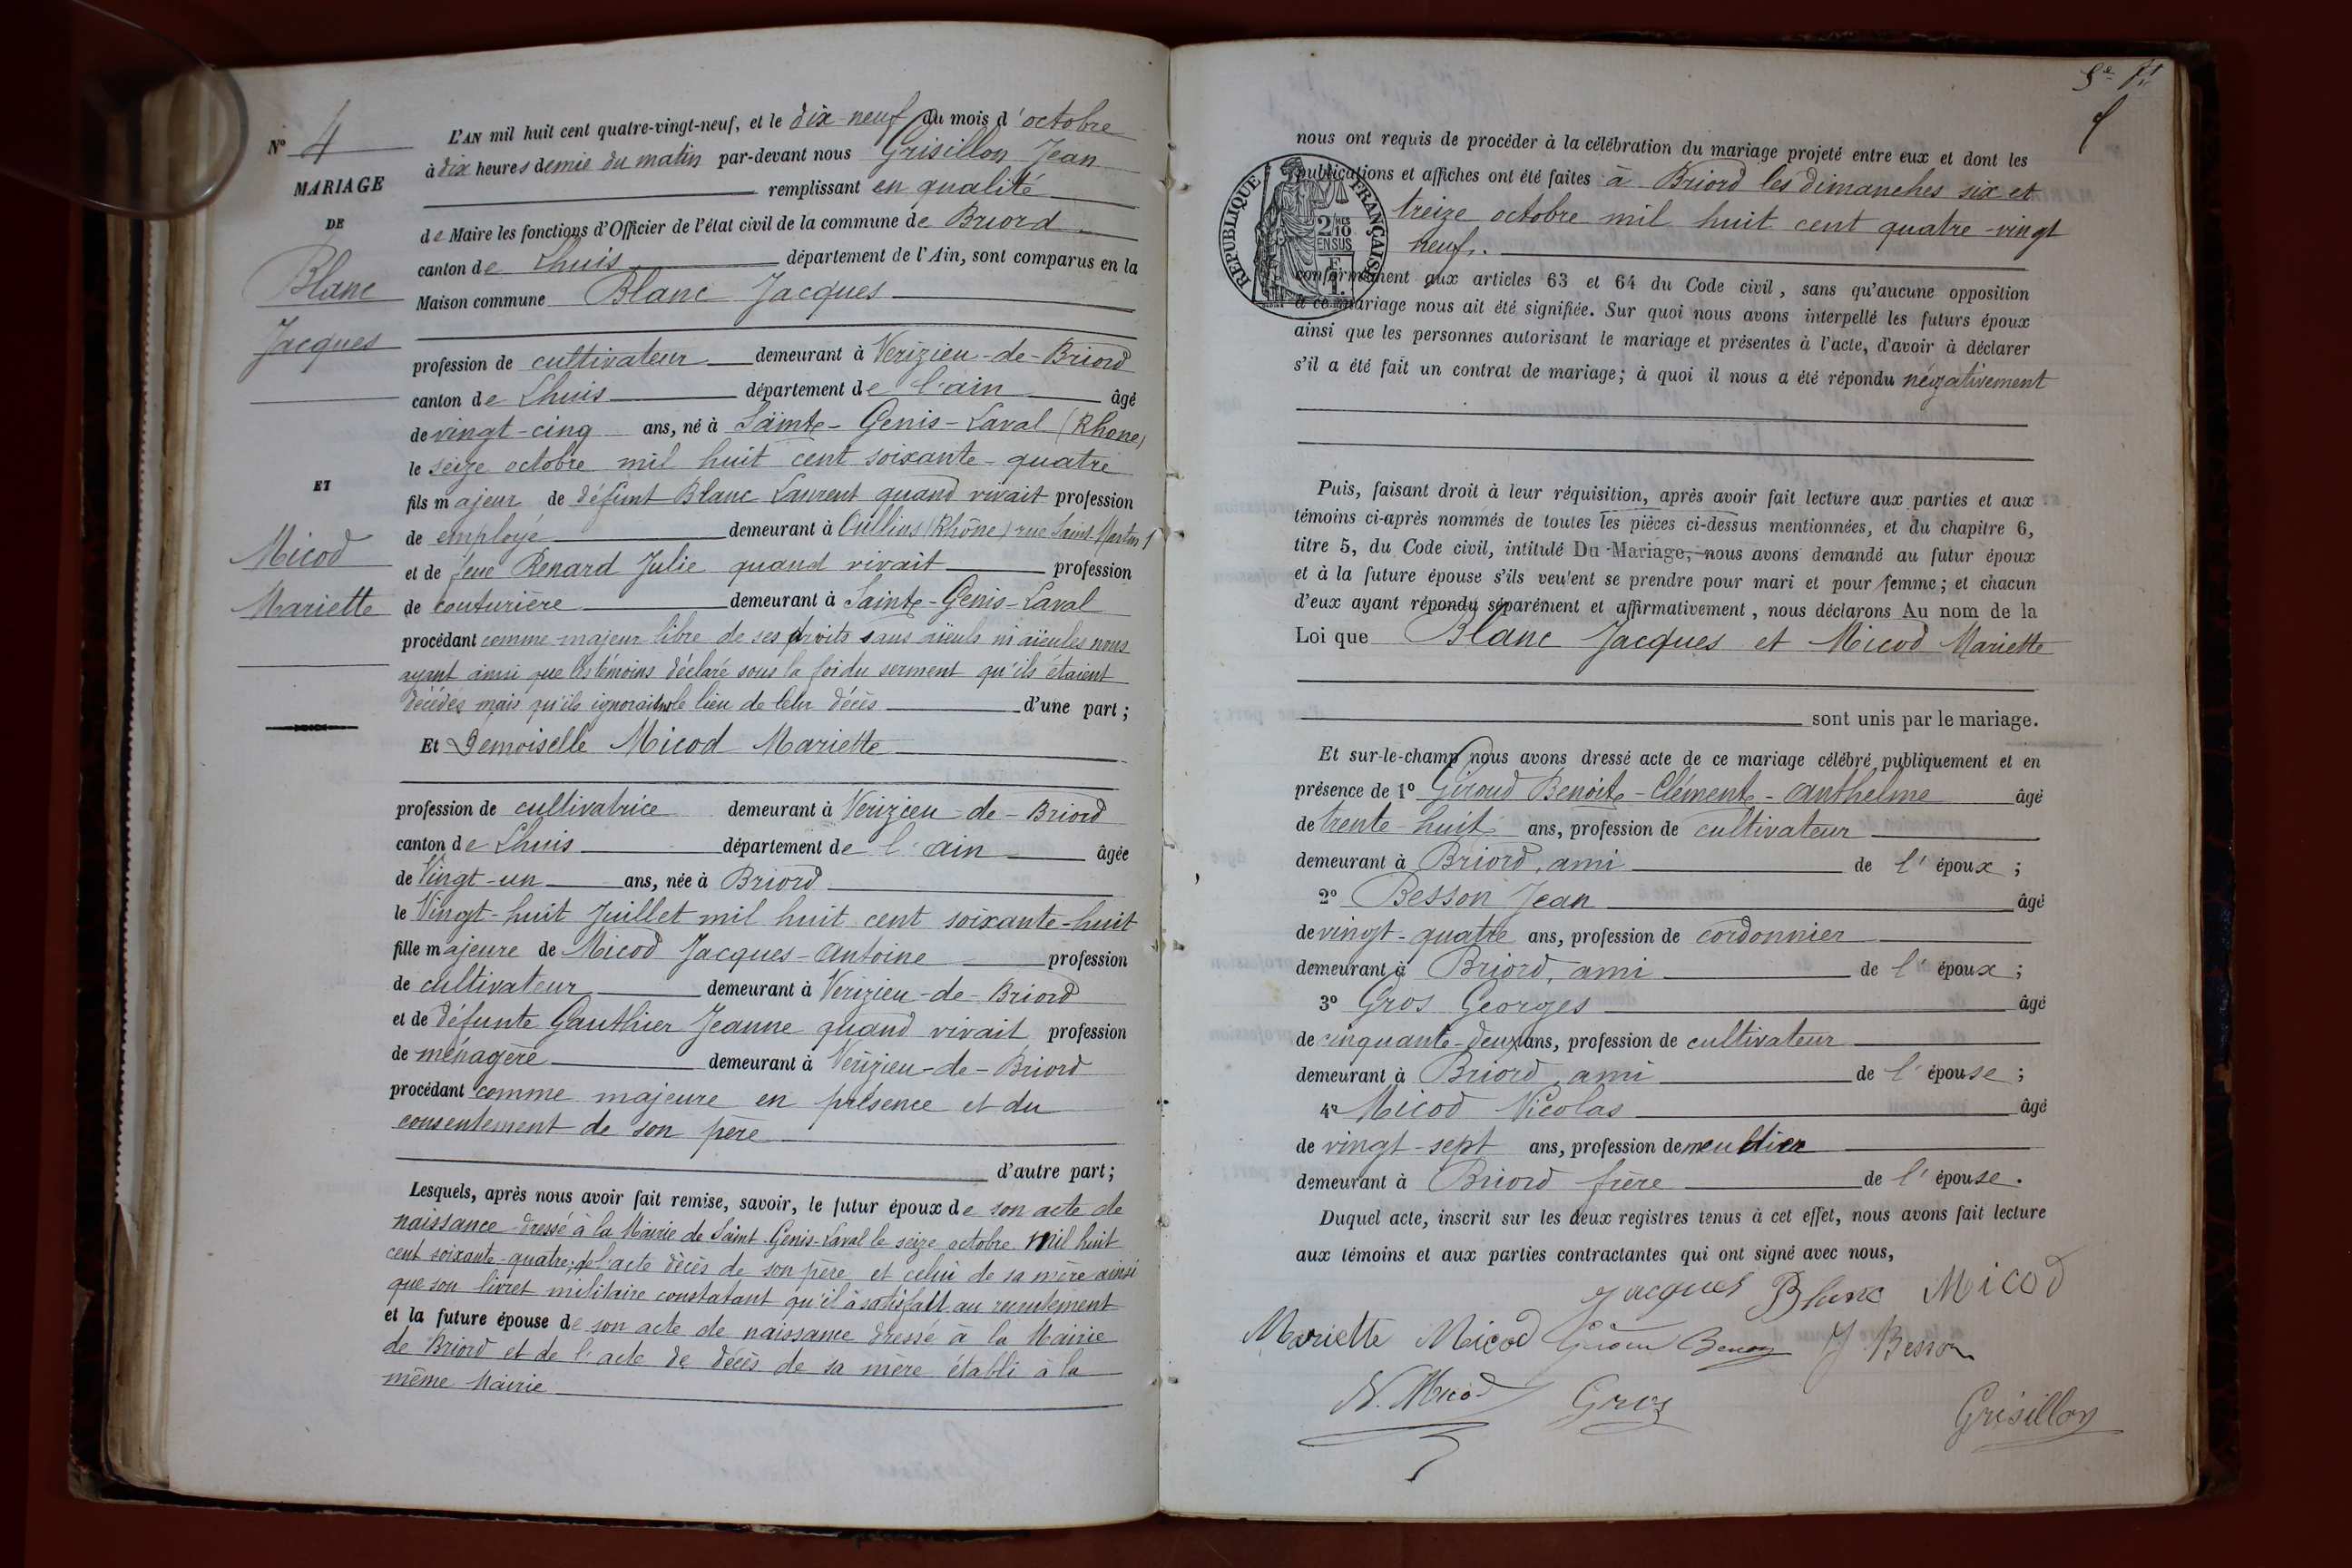 N° 4
MARIAGE
DE
Blanc
Jacques
ET
Micod
Mariette
L'AN mil huit cent quatre-vingt-neuf, et le dix-neuf du mois d'octobre
à dix heures demie du matin par-devant nous Grisillon Jean
remplissant en qualité
de Maire les fonctions d'Officier de l'état civil de la commune de Briord
canton de Lhuis département de l'Ain, sont comparus en la
Maison commune Blanc Jacques
profession de cultivateur demeurant à Verizieu-de-Briord
canton de Lhuis département de l'ain âgé
de vingt-cinq ans, né à Sainte-Genis-Laval (Rhone)
le seize octobre mil huit cent soixante-quatre
fils majeur de défunt Blanc Laurent quand vivait profession
de employé demeurant à Oullins (Rhône) rue Saint-Martin 1
et de feue Renard Julie quand vivait profession
de couturière demeurant à Sainte-Genis-Laval
procédant comme majeur libre de ses droits sans aïeuls ni aïeules nous
ayant ainsi que les témoins déclaré sous la foi du serment qu'ils étaient
décédés mais qu'ils ignoraient le lieu de leur décès d'une part;
Et Demoiselle Micod Mariette
profession de cultivatrice demeurant à Verizieu-de-Briord
canton de Lhuis département de l'ain âgée
de Vingt-un ans, née à Briord
le Vingt-huit Juillet mil huit cent soixante-huit
fille majeure de Micod Jacques-Antoine profession
de cultivateur demeurant à Verizieu-de-Briord
et de défunte Gauthier Jeanne quand vivait profession
de ménagère demeurant à Verizieu-de-Briord
procédant comme majeure en présence et du
consentement de son père
d'autre part;
Lesquels, après nous avoir fait remise, savoir, le futur époux de son acte de
naissance dressé à la Mairie de Saint-Genis-Laval le seize octobre mil huit
cent soixante-quatre; de l'acte décès de son père et celui de sa mère ainsi
que son livret militaire constatant qu'il à satisfait au recrutement
et la future épouse de son acte de naissance dressé à la Mairie
de Briord et de l'acte de décès de sa mère établi à la
même Mairie
nous ont requis de procéder à la célébration du mariage projeté entre eux et dont les
publications et affiches ont été faites à Briord les dimanches six et
treize octobre mil huit cent quatre-vingt
neuf.
RÉPUBLIQUE FRANÇAISE
2/10
EN SUS
conformément aux articles 63 et 64 du Code civil, sans qu'aucune opposition
à ce mariage nous ait été signifiée. Sur quoi nous avons interpellé les futurs époux
ainsi que les personnes autorisant le mariage et présentes à l'acte, d'avoir à déclarer
s'il a été fait un contrat de mariage; à quoi il nous a été répondu négativement
Puis, faisant droit à leur réquisition, après avoir fait lecture aux parties et aux
témoins ci-après nommés de toutes les pièces ci-dessus mentionnées, et du chapitre 6,
titre 5, du Code civil, intitulé Du Mariage, nous avons demandé au futur époux
et à la future épouse s'ils veulent se prendre pour mari et pour femme; et chacun
d'eux ayant répondu séparément et affirmativement, nous déclarons Au nom de la
Loi que Blanc Jacques et Micod Mariette
sont unis par le mariage.
Et sur-le-champ nous avons dressé acte de ce mariage célébré publiquement et en
présence de 1° Giroud Benoite-Clémente-Anthelme âgé
de trente-huit ans, profession de cultivateur
demeurant à Briord, ami de l'époux;
2° Besson Jean âgé
de vingt-quatre ans, profession de cordonnier
demeurant à Briord, ami de l'époux;
3° Gros Georges âgé
de cinquante-deux ans, profession de cultivateur
demeurant à Briord, ami de l'épouse;
4° Micod Nicolas âgé
de vingt-sept ans, profession de meunier
demeurant à Briord frère de l'épouse.
Duquel acte, inscrit sur les deux registres tenus à cet effet, nous avons fait lecture
aux témoins et aux parties contractantes qui ont signé avec nous,
Jacques Blanc Micod
Mariette Micod Giroud Benoit J Besson
N. Micod Gros Grisillon